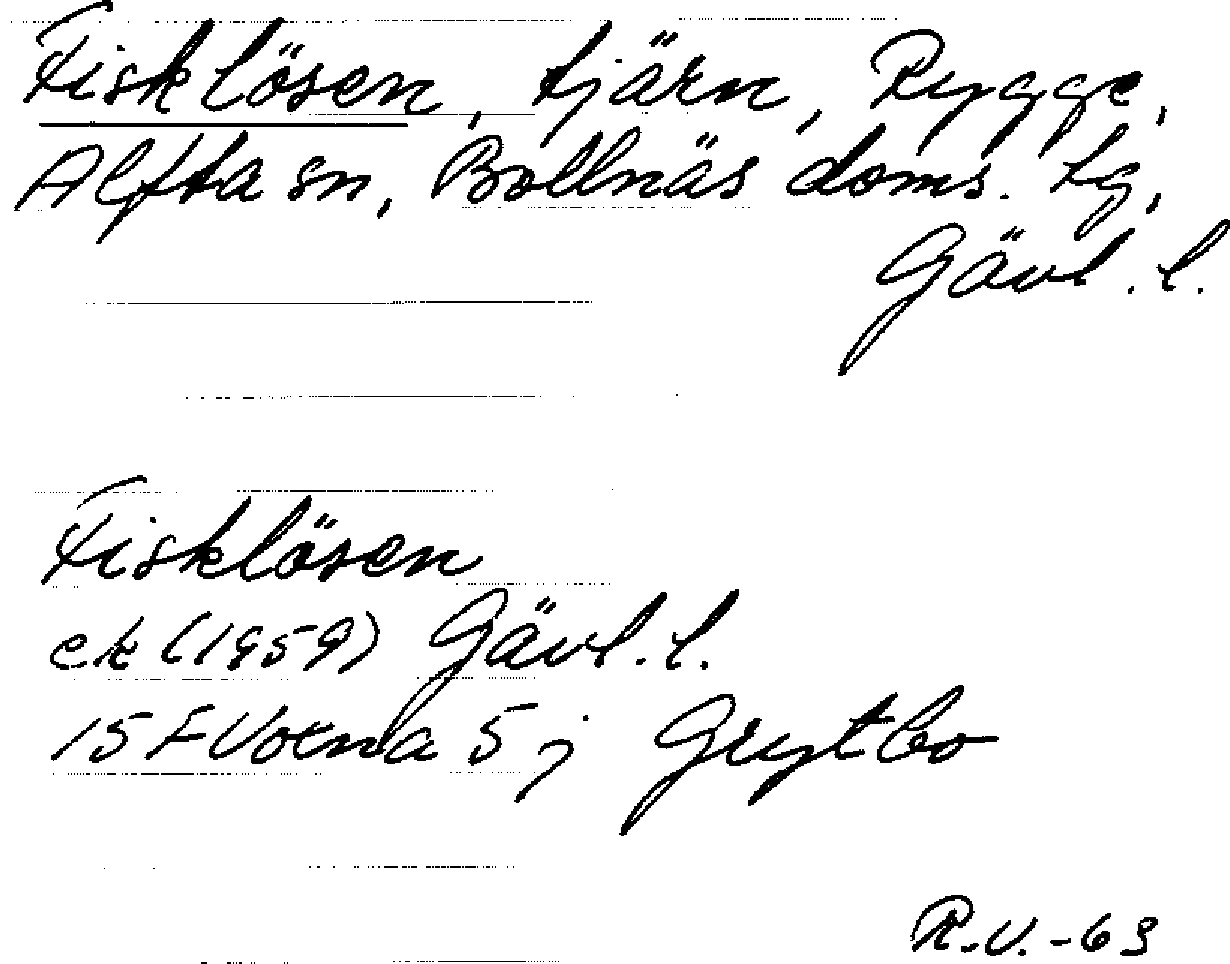 Fisklösen, tjärn, Rygge,
Alfta sn, Bollnäs doms. tg,
Gävl. l.
Fisklösen
ek (1959) Gävl. l.
15 F Voxna 5 j Grytbo
R.V. - 63